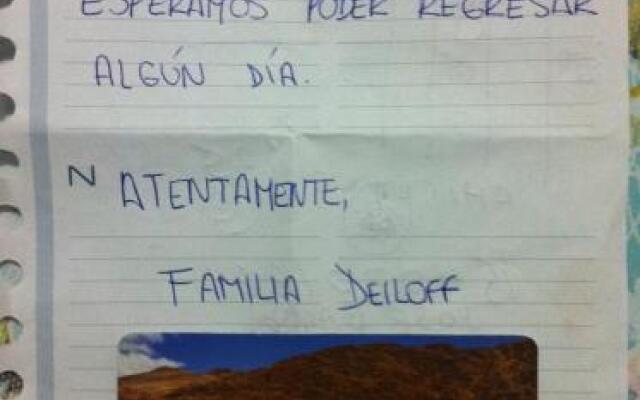 ESPERAMOS PODER REGRESAR
ALGÚN DÍA.
N ATENTAMENTE,
FAMILIA DEILOFF